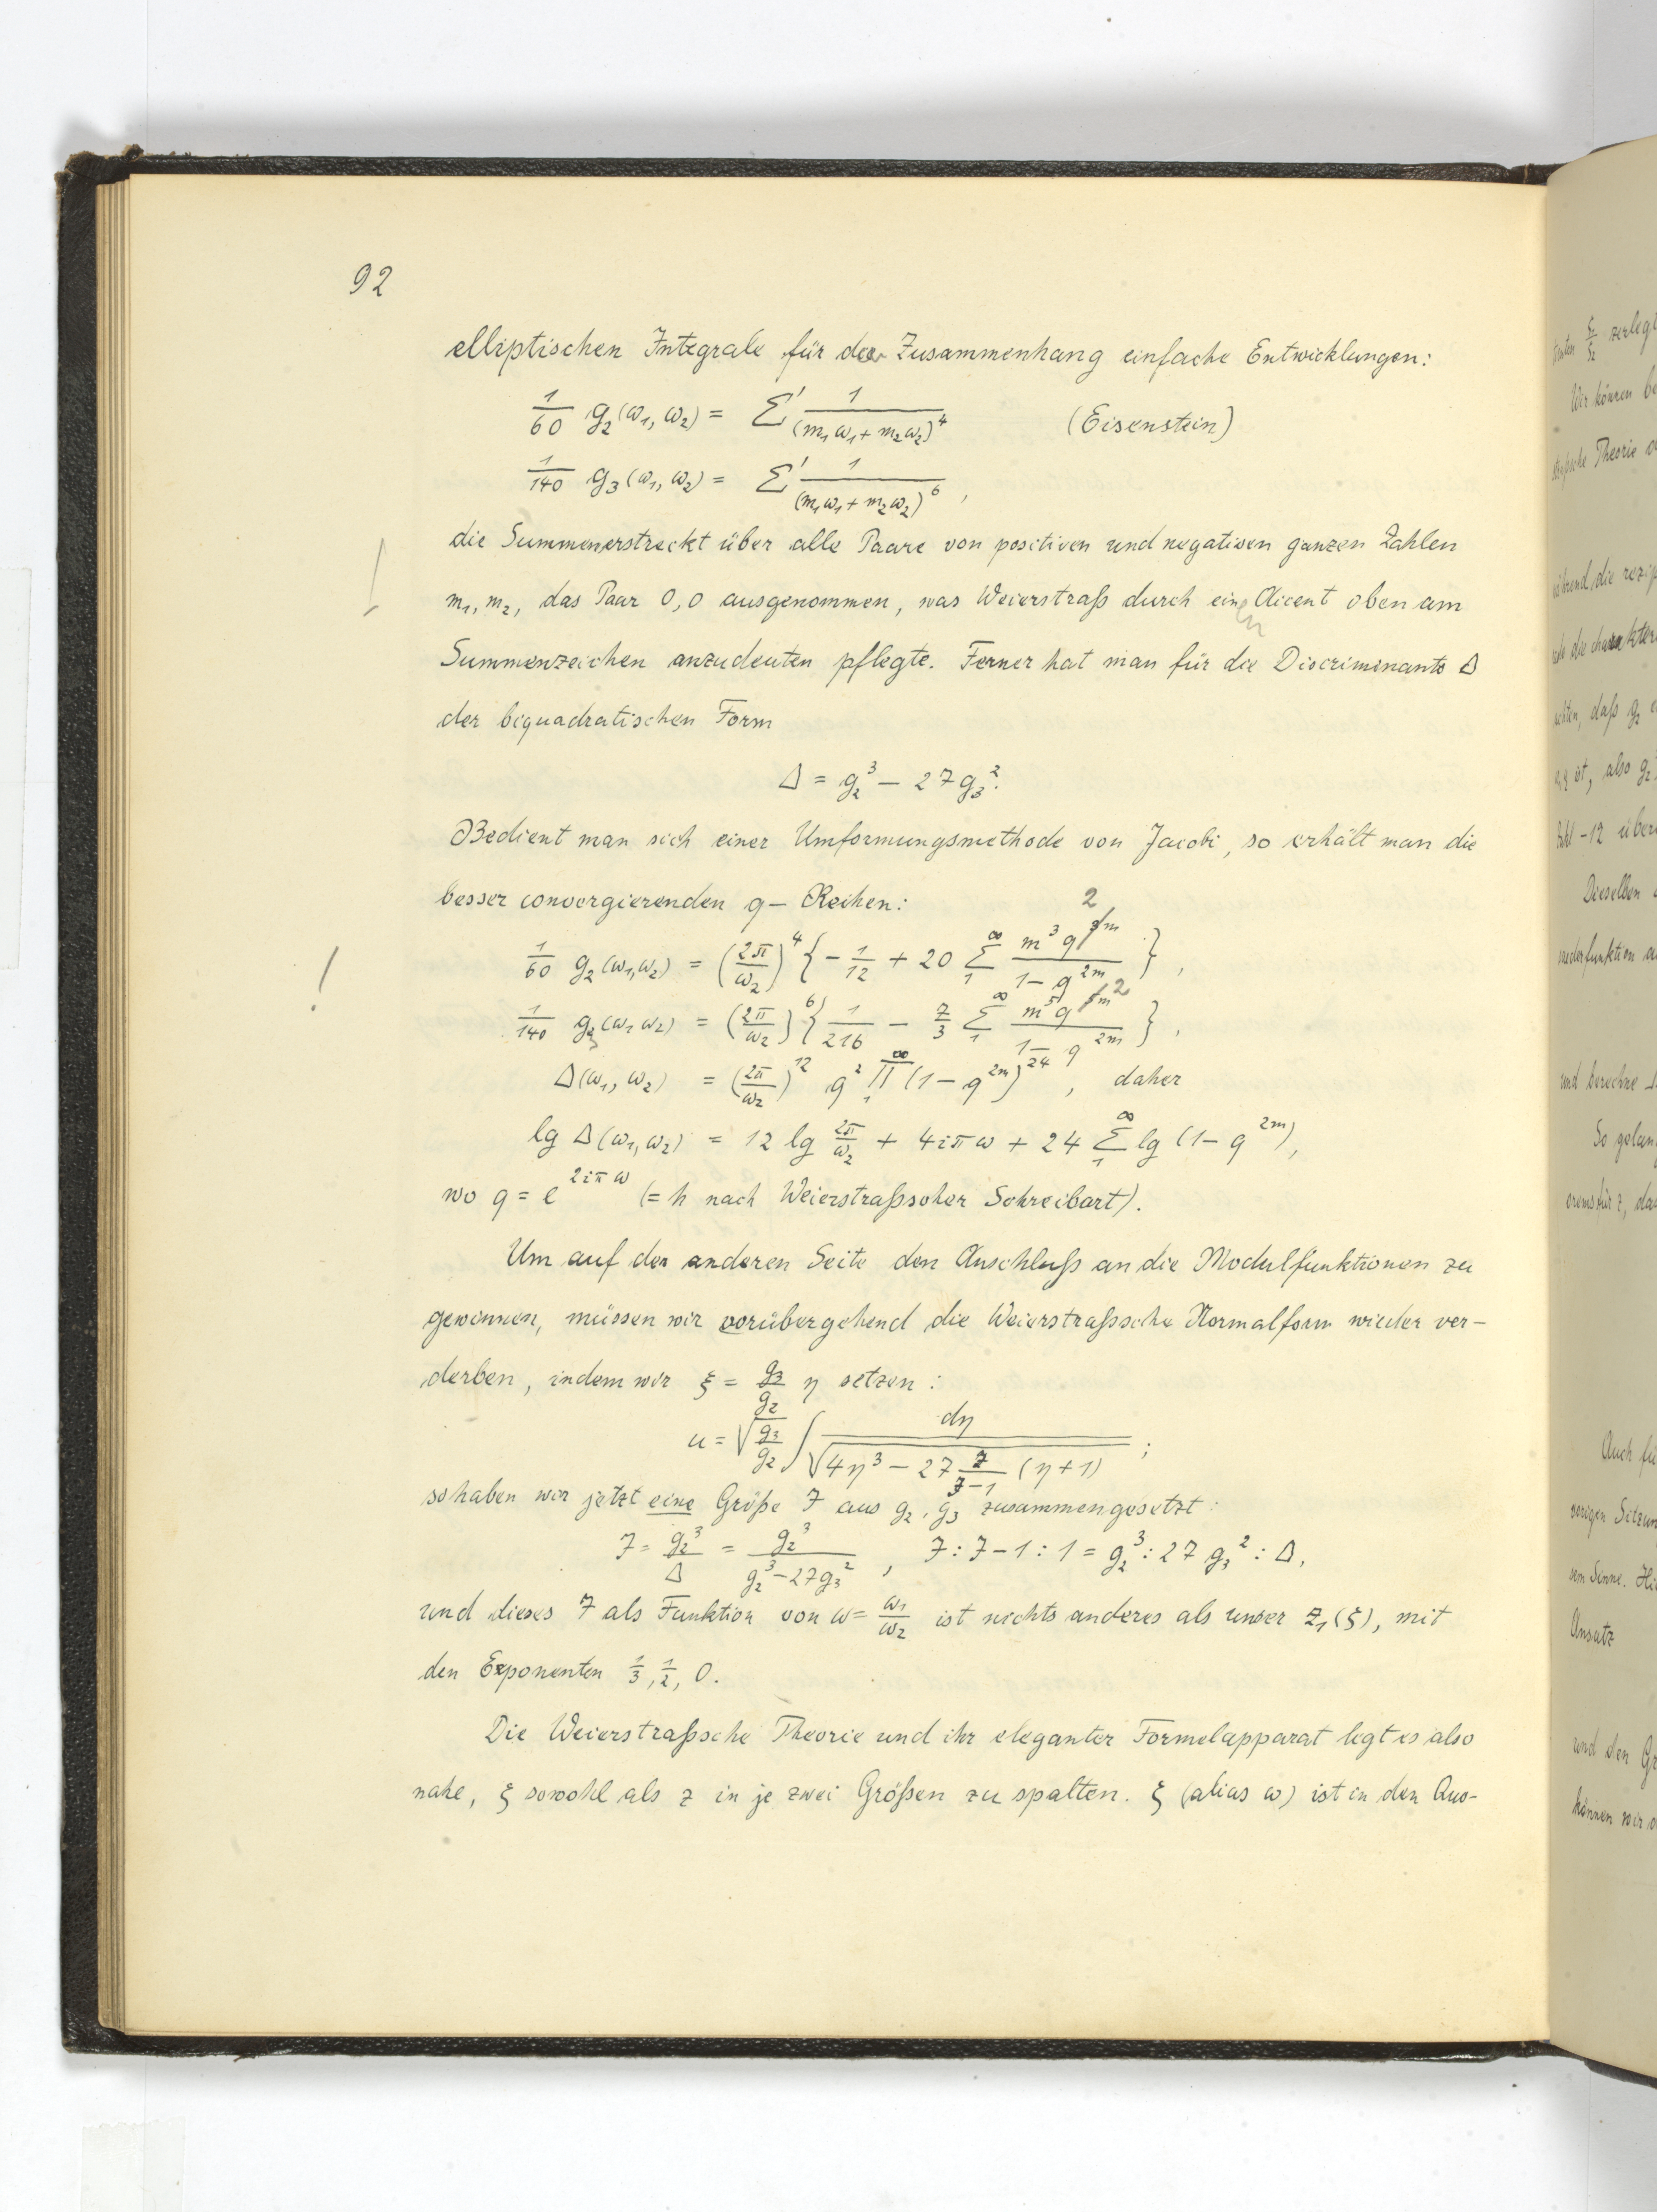 92
elliptischen Integrale für den Zusammenhang einfache Entwicklungen:
1/60 g₂(ω₁, ω₂) = Σ' 1/(m₁ω₁ + m₂ω₂)⁴ (Eisenstein)
1/140 g₃(ω₁, ω₂) = Σ' 1/(m₁ω₁ + m₂ω₂)⁶ ,
die Summen erstreckt über alle Paare von positiven und negativen ganzen Zahlen
m₁, m₂, das Paar 0,0 ausgenommen, was Weierstraß durch einen Akcent oben am
Summenzeichen anzudeuten pflegte. Ferner hat man für die Discriminante Δ
der biquadratischen Form
Δ = g₂³ – 27 g₃².
Bedient man sich einer Umformungsmethode von Jacobi, so erhält man die
besser convergierenden q – Reihen:
1/60 g₂(ω₁,ω₂) = (2π/ω₂)⁴ { – 1/12 + 20 Σ₁^∞ m³q^2m / 1 – q^2m } ,
! 1/140 g₃(ω₁ ω₂) = (2π/ω₂)⁶ { 1/216 – 7/3 Σ₁^∞ m⁵q^2m / 1 – q^2m } ,
Δ(ω₁, ω₂) = (2π/ω₂)¹² q² Π₁^∞ (1 – q^2m)²⁴ , daher
lg Δ(ω₁,ω₂) = 12 lg 2π/ω₂ + 4iπω + 24 Σ₁^∞ lg (1 – q^2m),
wo q = e^2iπω (= h nach Weierstraßscher Schreibart).
Um auf der anderen Seite den Anschluß an die Modulfunktionen zu
gewinnen, müssen wir vorübergehend die Weierstraßsche Normalform wieder ver–
derben, indem wir ξ = g₃/g₂ η setzen :
u = √(g₂/g₃) ∫ dη / √(4η³ – 27 J/(J–1) (η+1)) ;
so haben wir jetzt eine Größe J aus g₂, g₃ zusammengesetzt :
J = g₂³/Δ = g₂³/(g₂³ – 27g₃²) , J : J – 1 : 1 = g₂³ : 27 g₃² : Δ,
und dieses J als Funktion von ω = ω₁/ω₂ ist nichts anderes als unser z₁(ξ), mit
den Exponenten 1/3, 1/2, 0.
Die Weierstraßsche Theorie und ihr eleganter Formelapparat legt es also
nahe, ξ sowohl als z in je zwei Größen zu spalten. ξ (alias ω) ist in den Aus–